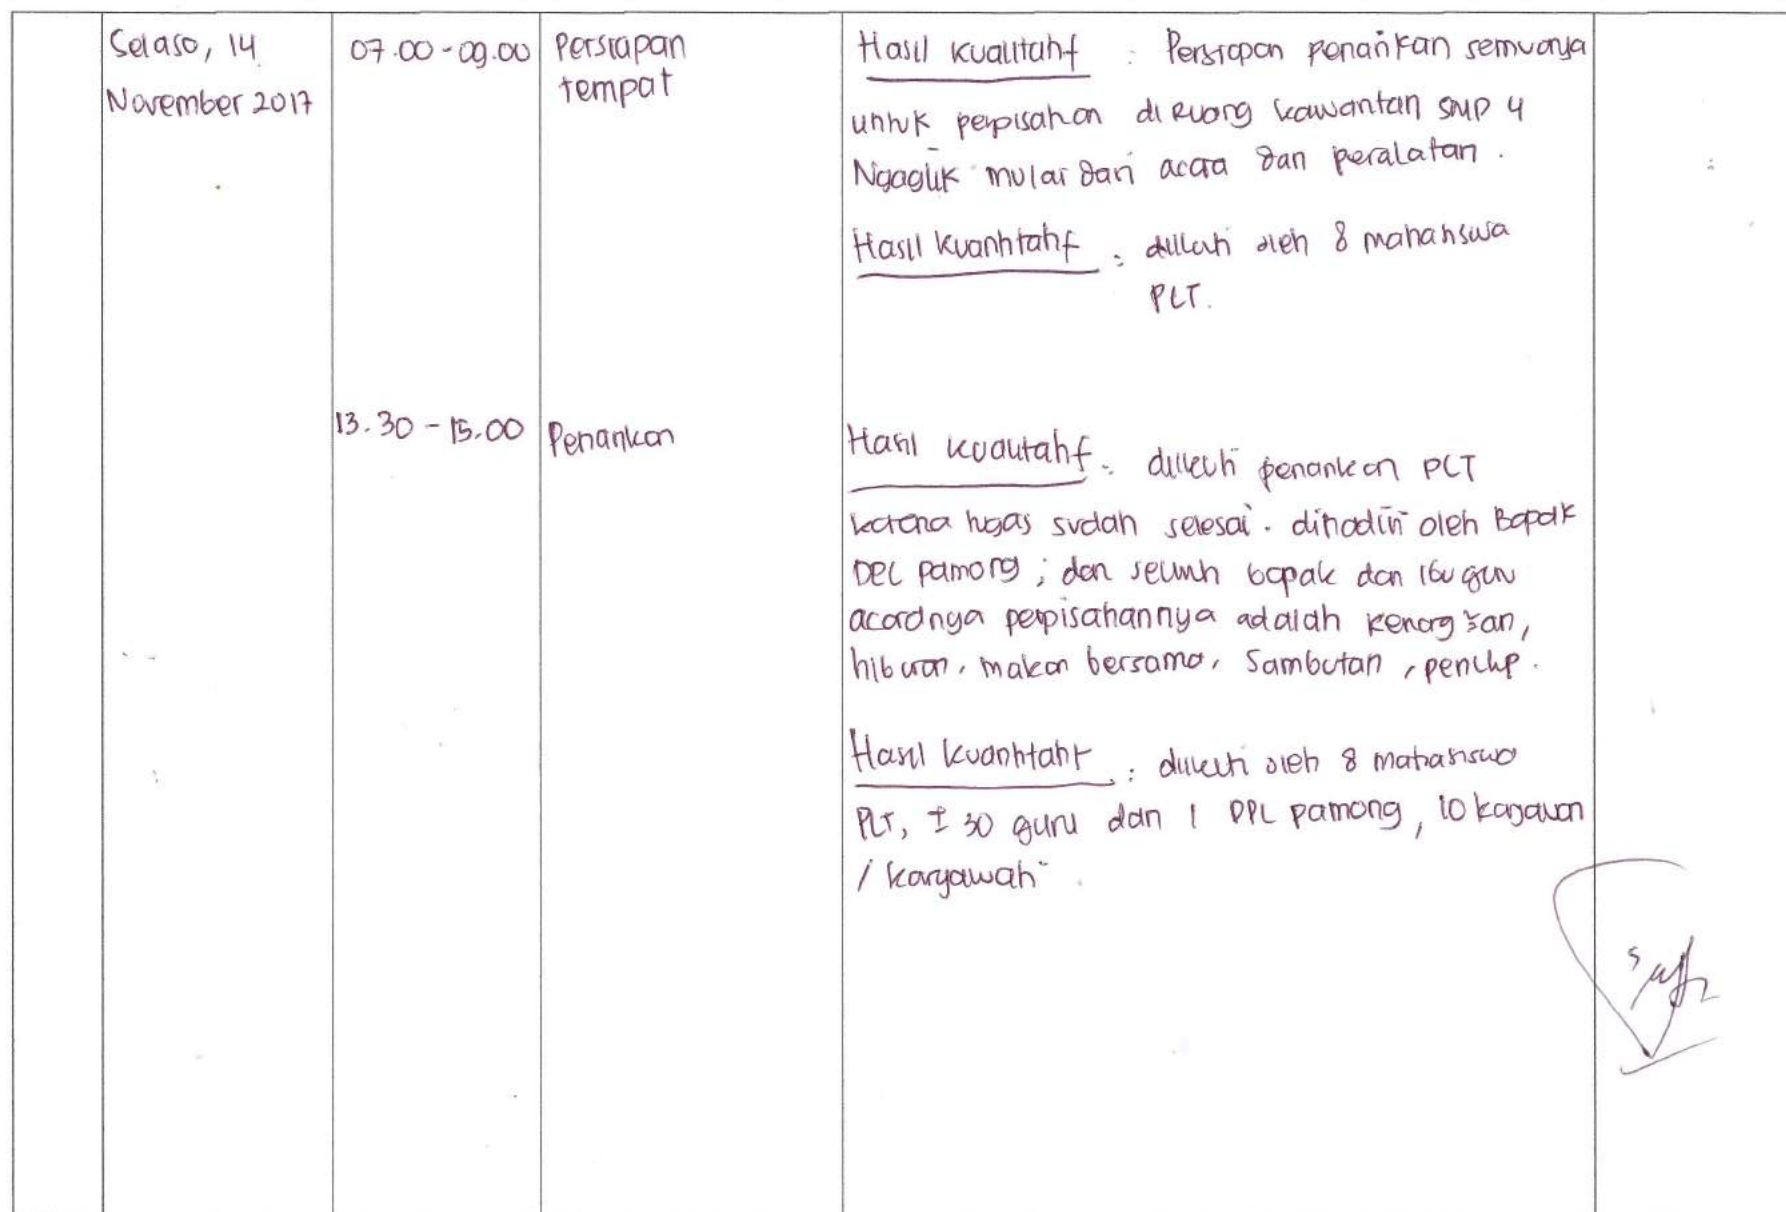 Selasa, 14
November 2017
07.00 - 09.00
Persiapan
tempat
Hasil kualitatif : Persiapan penarikan semuanya
untuk perpisahan di Ruang karawitan SMP 4
Ngaglik mulai dari acara dan peralatan.
Hasil kuantitatif : diikuti oleh 8 mahasiswa
PLT.
13.30 - 15.00
Penarikan
Hasil kualitatif : diikuti penarikan PLT
karena tugas sudah selesai. dihadiri oleh Bapak
DPL pamong, dan seluruh bapak dan ibu guru
acaranya perpisahannya adalah
hiburan, makan bersama, Sambutan, penutup.
Hasil kuantitatif : diikuti oleh 8 mahasiswa
PLT, ± 30 guru dan 1 DPL pamong, 10
/ karyawati.